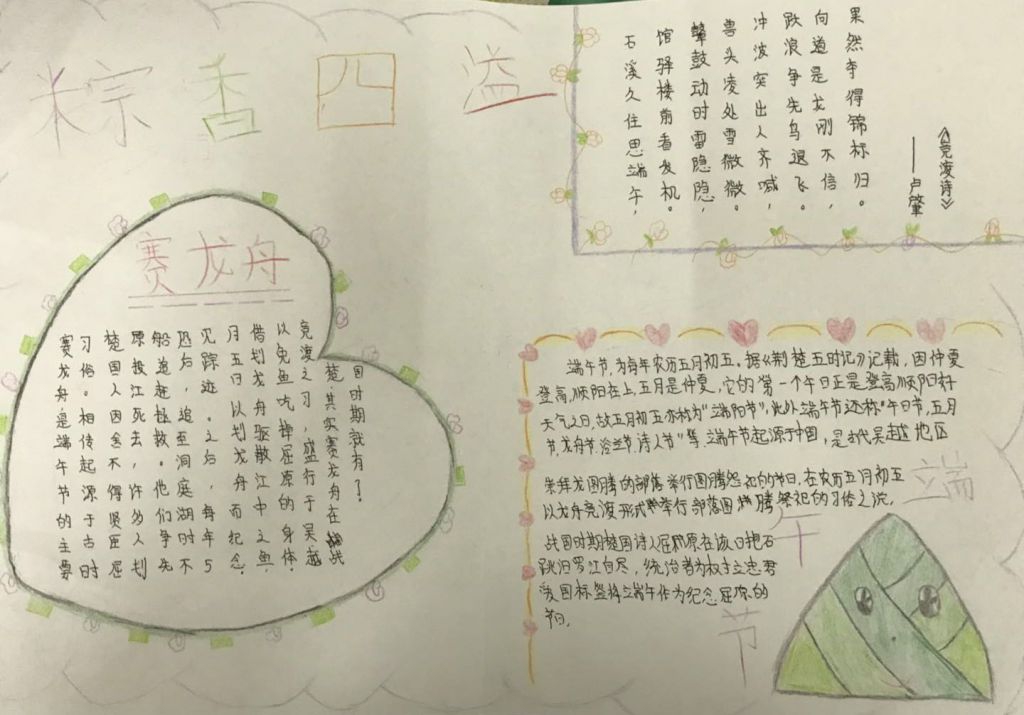 粽香四溢
《竞渡诗》
——卢肇
石溪久住思端午，
馆驿楼前看发机。
鼙鼓动时雷隐隐，
兽头凌处雪微微。
冲波突出人齐喊，
跃浪争先鸟退飞。
向道是龙刚不信，
果然夺得锦标归。
赛龙舟
赛龙舟是端午节的主要
习俗。相传起源于古时
楚国人因舍不得贤臣屈
原投江死去，许多人划
船追赶拯救。他们争先
恐后，追至洞庭湖时不
见踪迹。之后，每年5
月五日以划龙舟而纪念。
借划龙舟驱散江中之鱼，
以免鱼吃掉屈原的身体。
竞渡之习，盛行于吴越
楚。其实赛龙舟在战
国时期就有了？
端午节，为每年农历五月初五。据《荆楚五时记》记载，因仲夏
登高，顺阳在上，五月是仲夏，它的第一个午日正是登高顺阳
天气之日，故五月初五亦称为"端阳节"，此外端午节还称"午日节，五月
节，龙舟节，浴兰节，诗人节"等，端午节起源于中国，是古代吴越地区
崇拜龙图腾的部族举行图腾祭祀的节日，在农历五月初五
以龙舟竞渡形式举行部落图腾祭祀的习俗之说。
战国时期楚国诗人屈原在该日抱石
跳汨罗江自尽，统治者为树立忠君
爱国标签将端午作为纪念屈原的
节日。
端
午
节